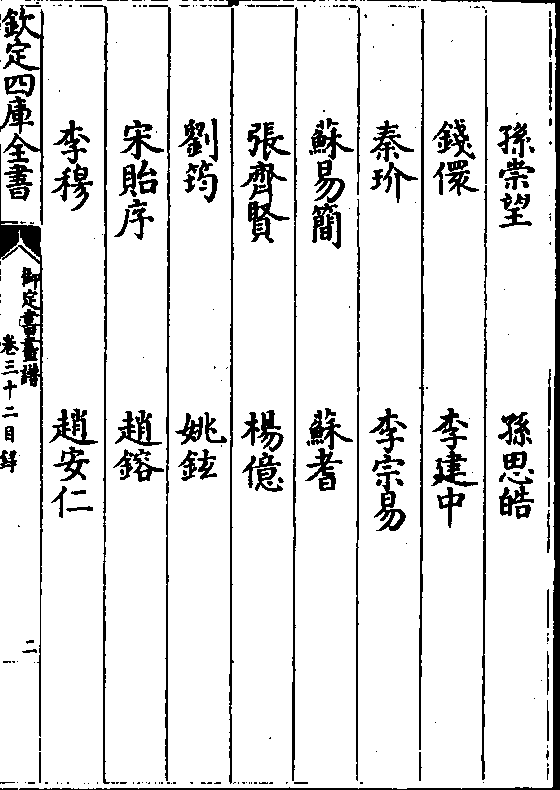 孫崇望 孫思皓
錢儼 李建中
秦玠 李宗易
蘇易簡 蘇耆
張齊賢 楊億
劉筠 姚鉉
宋貽序 趙鎔
李穆 趙安仁
欽定四庫全書
御定書畫譜
卷三十二目錄
二